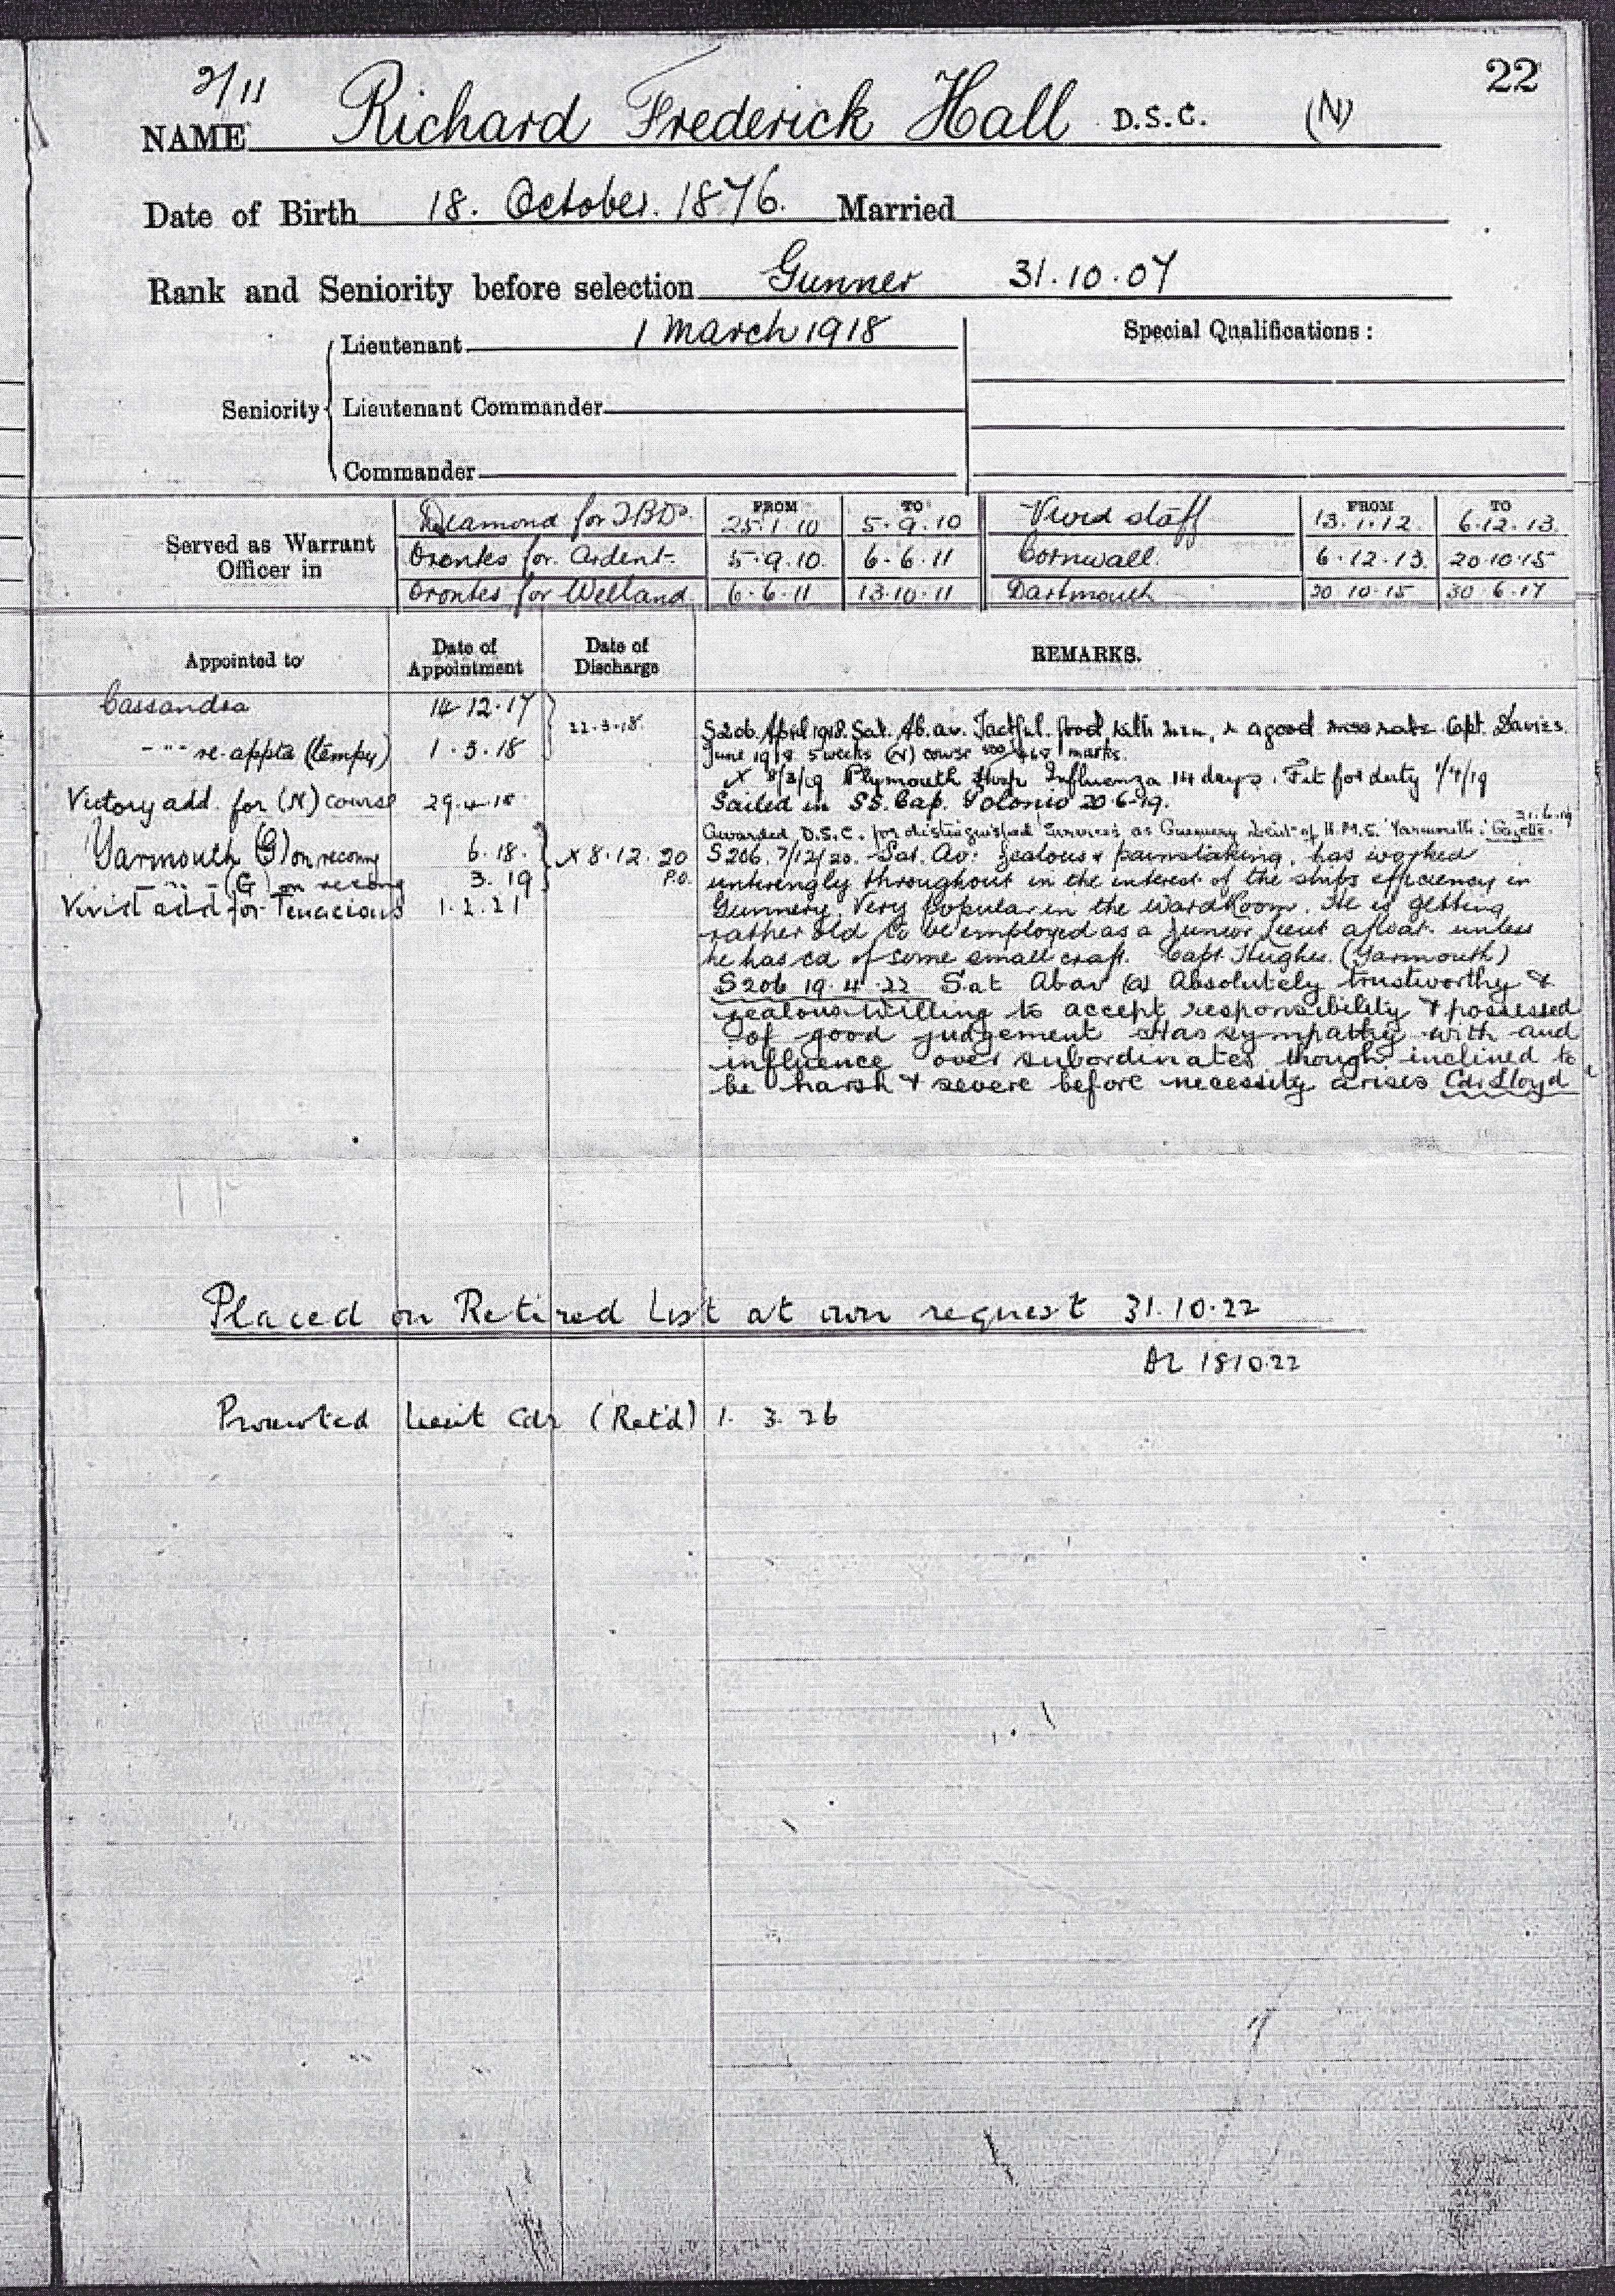 22
2/11
NAME Richard Frederick Hall D.S.C. (N)
Date of Birth 18. October. 1876. Married
Rank and Seniority before selection Gunner 31.10.07
Seniority
Lieutenant 1 March 1918
Lieutenant Commander
Commander
Special Qualifications:
Served as Warrant Officer in
FROM TO FROM TO
Diamond for TBDs. 25.1.10 5.9.10 Vivid staff 13.1.12. 6.12.13.
Orontes for Ardent. 5.9.10. 6.6.11 Cornwall. 6.12.13. 20.10.15
Orontes for Welland. 6.6.11 13.10.11 Dartmouth 20 10.15 30 6.17
Appointed to Date of Appointment Date of Discharge REMARKS.
Cassandra 14.12.17
22.3.18.
-"- re-apptd (tempy) 1.3.18
Victory add. for (N) course 29.4.18
Yarmouth (G) on recomg 6.18. X 8.12.20 P.O.
-"- (G) on recomg 3.19
Vivid add for Tenacious 1.2.21
S206. April 1918. Sat. Ab. av. Tactful. good with men, & a good mess mate Capt. Davies.
June 1918 5 weeks (N) course marks.
X 8/3/19 Plymouth Hosp Influenza 14 days. Fit for duty 1/4/19
Sailed in SS. Cap. Polonio 20-6-19.
Awarded D.S.C. for distinguished services as Gunnery Lieut of H.M.S. Yarmouth. Gazette.
S206. 7/12/20. Sat. Av: Zealous & painstaking, has worked
untiringly throughout in the interest of the ships efficiency in
Gunnery. Very popular in the Ward Room. He is getting
rather old to be employed as a junior Lieut afloat unless
he has cd of some small craft. Capt. Hughes. (Yarmouth)
S206 19.4.22 Sat Abav (a) Absolutely trustworthy &
zealous willing to accept responsibility & possessed
of good judgement Has sympathy with and
influence over subordinates though inclined to
be harsh & severe before necessity arises Cdr Lloyd
Placed on Retired List at own request 31.10.22
18 10.22
Promoted Lieut Cdr (Ret'd) 1. 3. 26